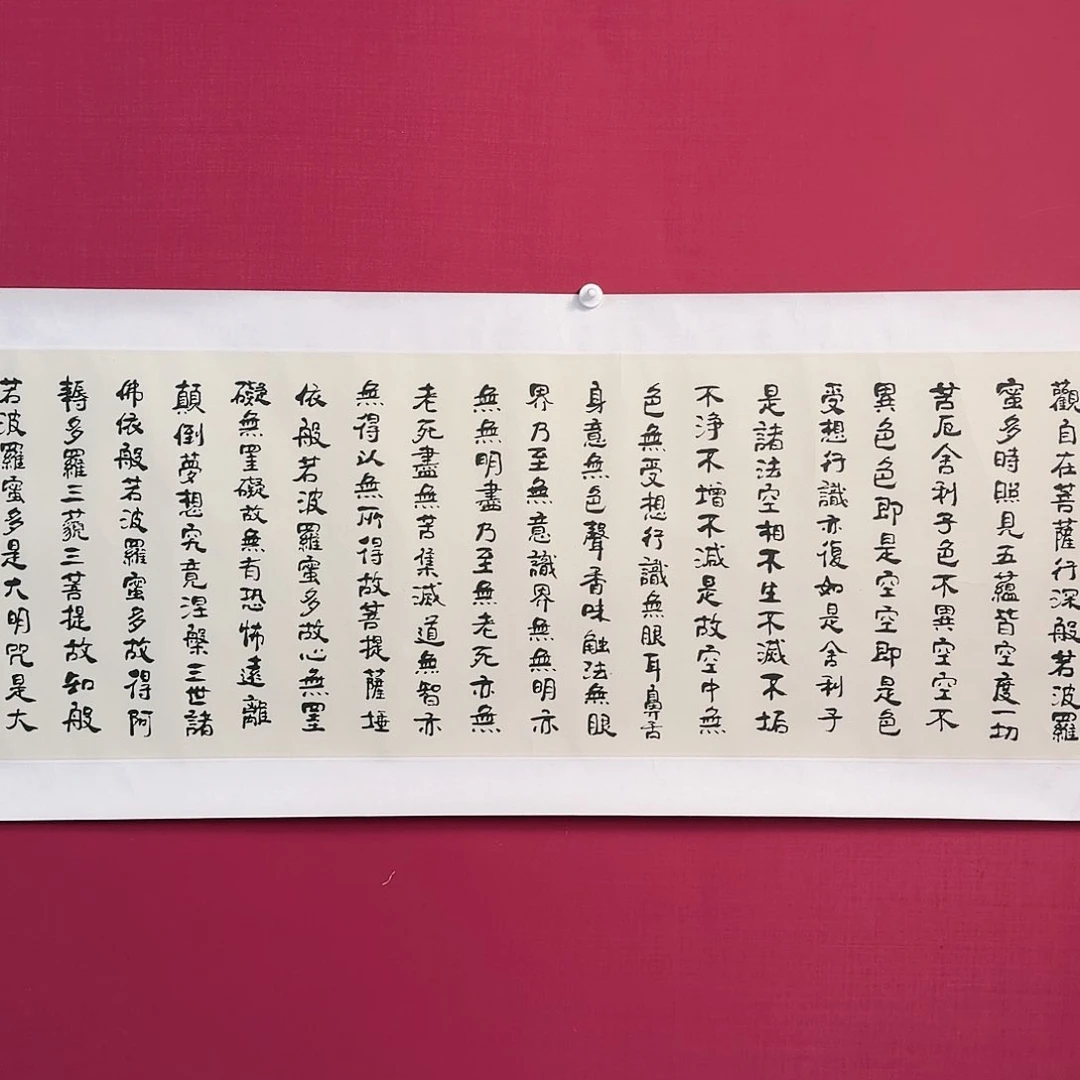 觀自在菩薩行深般若波羅
蜜多時照見五蘊皆空度一切
苦厄舍利子色不異空空不
異色色即是空空即是色
受想行識亦復如是舍利子
是諸法空相不生不滅不垢
不淨不增不減是故空中無
色無受想行識無眼耳鼻舌
身意無色聲香味触法無眼
界乃至無意識界無無明亦
無無明盡乃至無老死亦無
老死盡無苦集滅道無智亦
無得以無所得故菩提薩埵
依般若波羅蜜多故心無罣
礙無罣礙故無有恐怖遠離
顛倒夢想究竟涅槃三世諸
佛依般若波羅蜜多故得阿
耨多羅三藐三菩提故知般
若波羅蜜多是大明咒是大